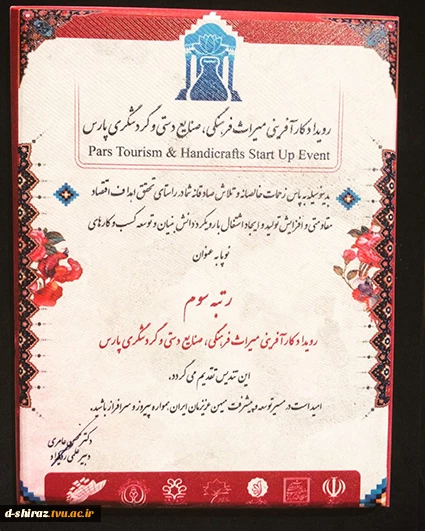 رویداد کارآفرینی میراث فرهنگی، صنایع دستی و گردشگری پارس
Pars Tourism & Handicrafts Start Up Event
بدینوسیله به پاس زحمات خالصانه و تلاش صادقانه شما در راستای تحقق اهداف اقتصاد
مقاومتی و افزایش تولید و ایجاد اشتغال با رویکرد دانش بنیان و توسعه کسب و کارهای
نوپا به عنوان
رتبه سوم
رویداد کارآفرینی میراث فرهنگی، صنایع دستی و گردشگری پارس
این تندیس تقدیم می گردد.
امید است در مسیر توسعه و پیشرفت میهن عزیزمان ایران همواره پیروز و سرافراز باشید.
دکتر عامری
دبیر علمی رویداد
d-shiraz.tvu.ac.ir